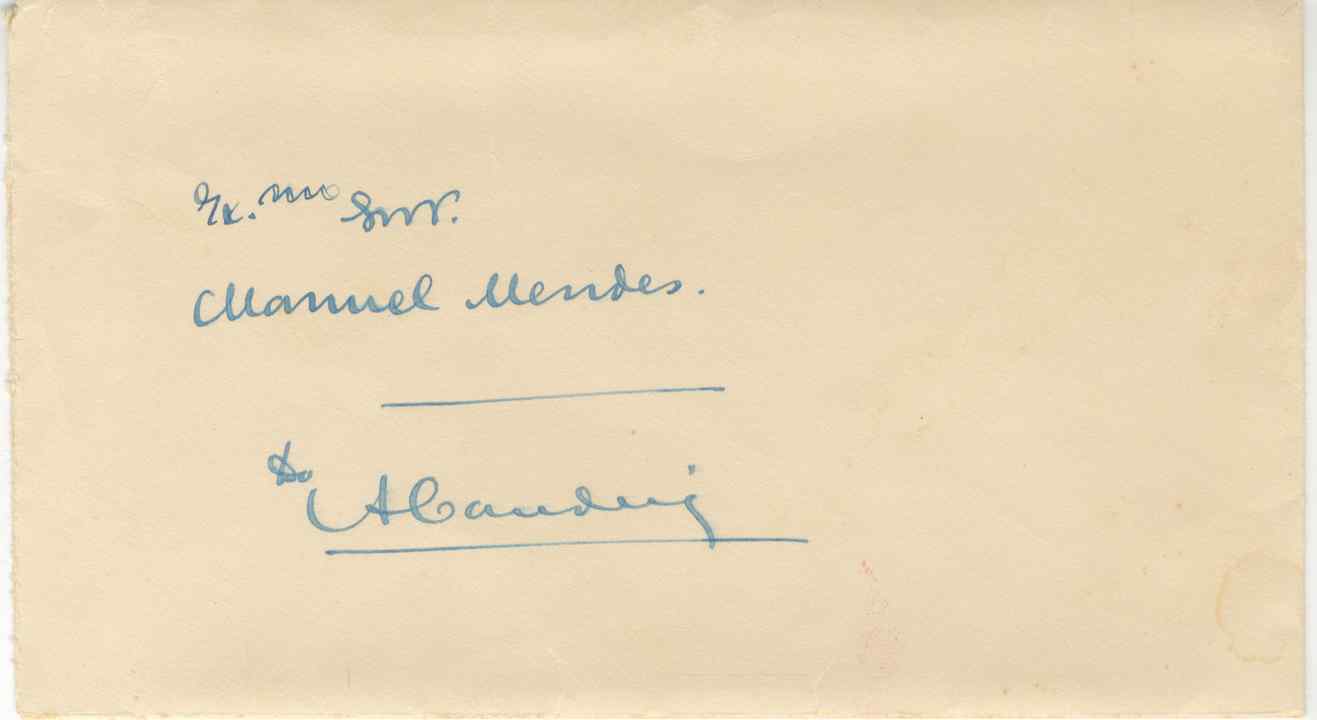 Ex.mo Snr.
Manuel Mendes.
Do